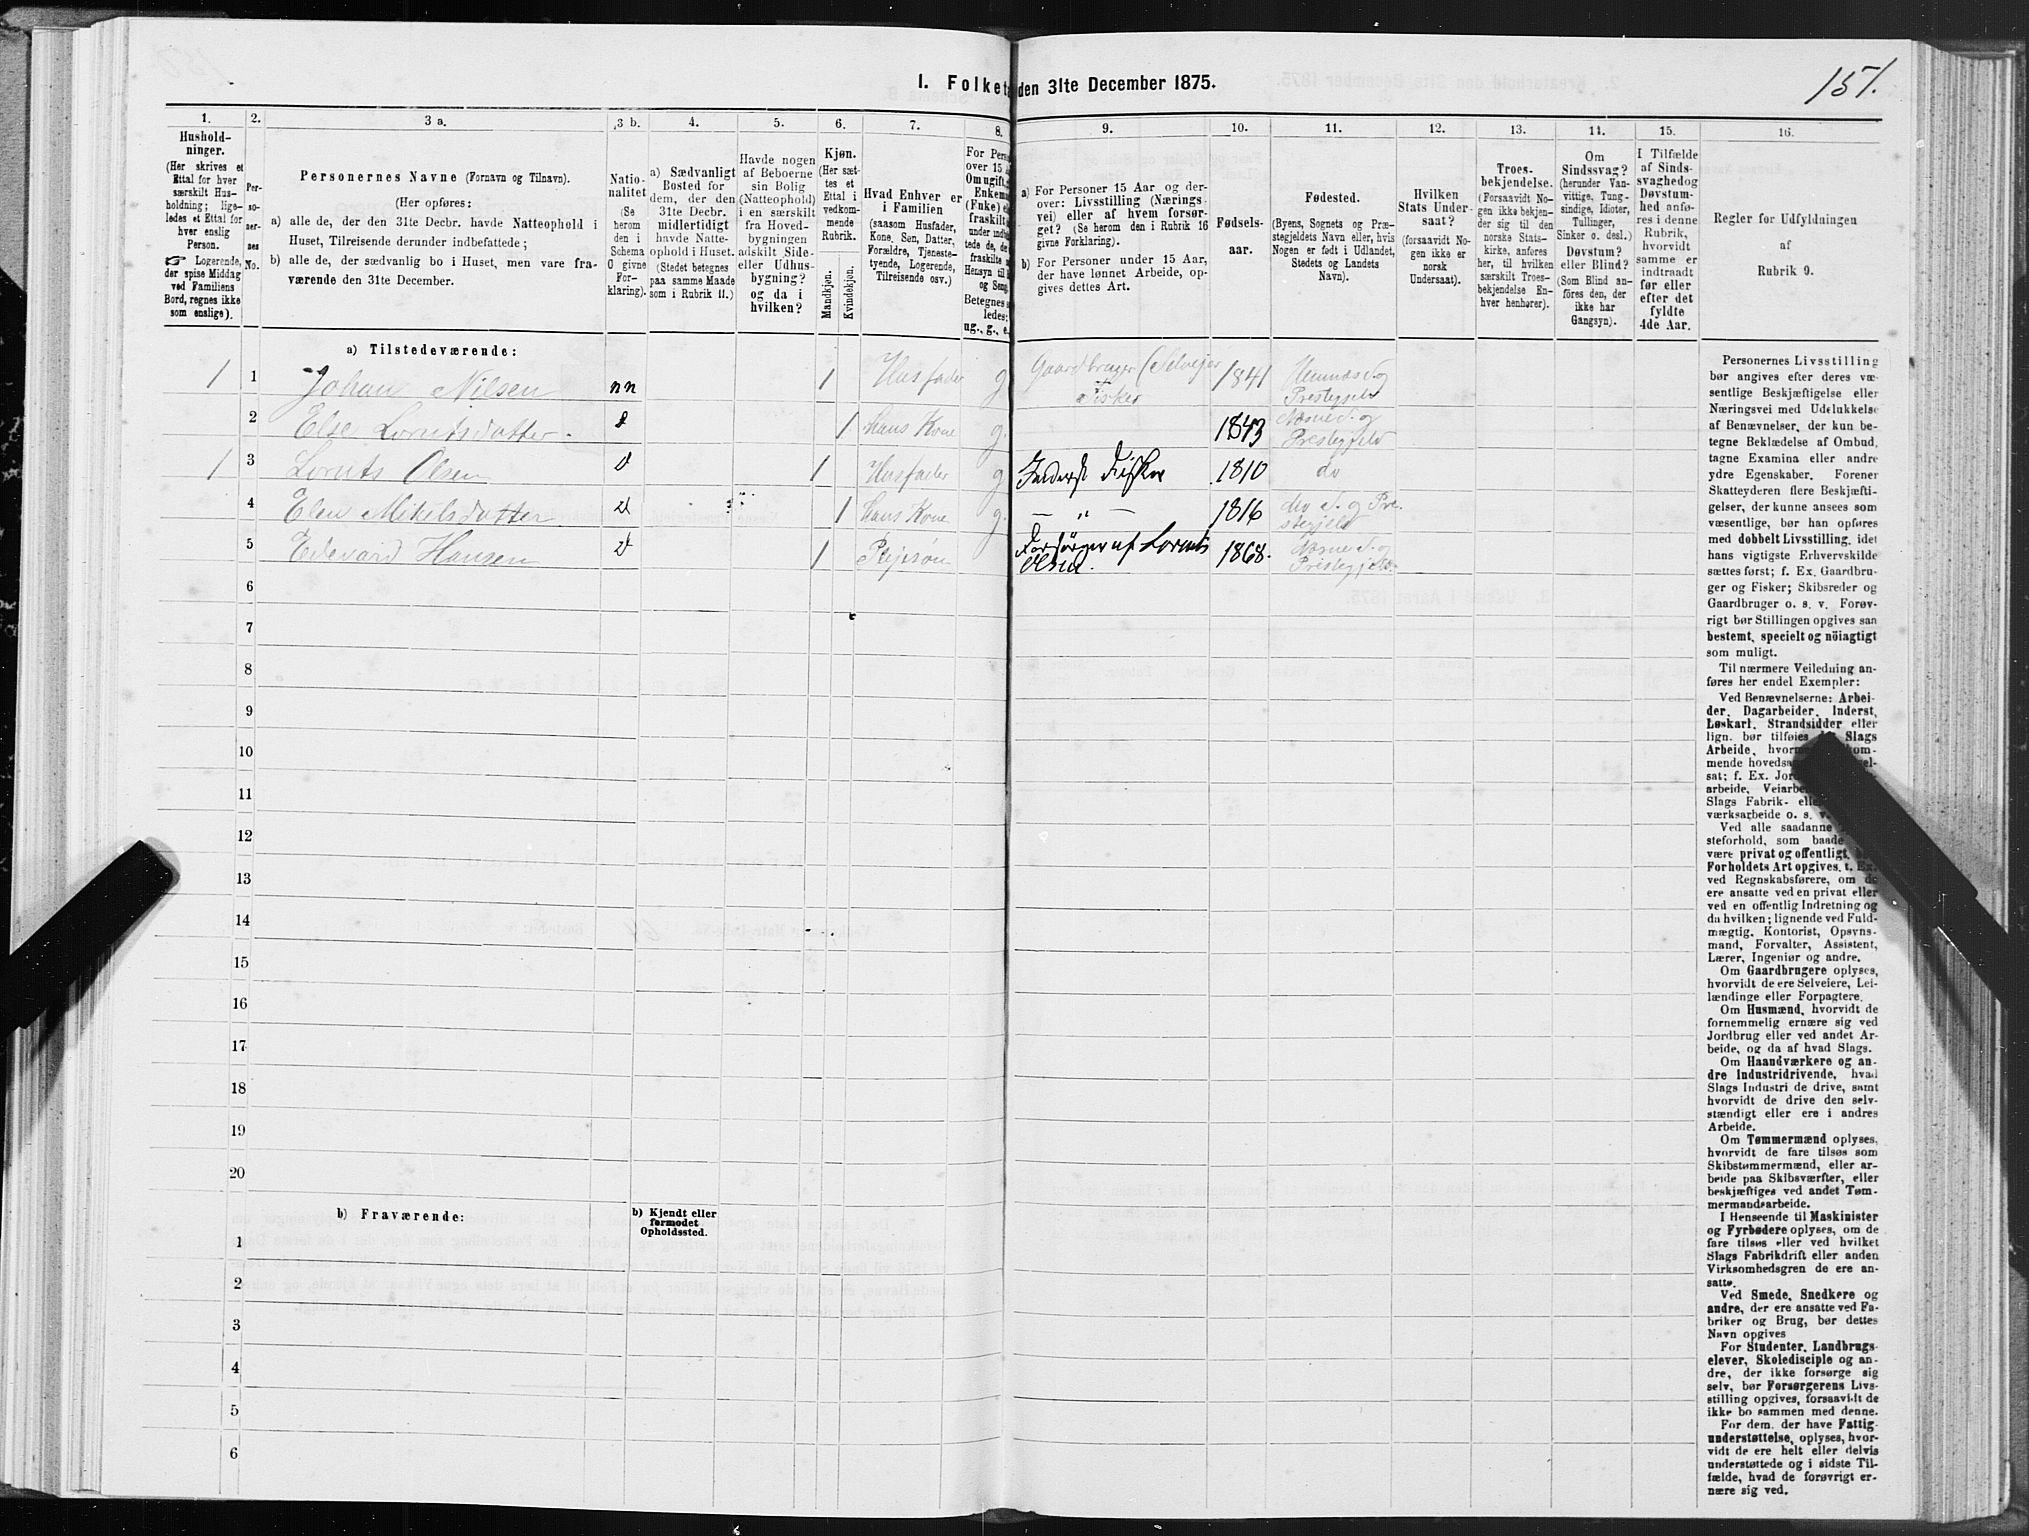 151.
I. Folketæ den 31te December 1875.
1. 2. 3 a. 3 b. 4. 5. 6. 7. 8. 9. 10. 11. 12. 13. 14. 15. 16.
Hushold-
ninger.
(Her skrives et
Ettal for hver
særskilt Hus-
holdning; lige-
ledes et Ettal for
hver enslig
Person.
☞ Logerende,
der spise Middag
ved Familiens
Bord, regnes ikke
som enslige).
Per-
so-
ner-
nes
No.
Personernes Navne (Fornavn og Tilnavn).
(Her opføres:
a) alle de, der den 31te Decbr. havde Natteophold i
Huset, Tilreisende derunder indbefattede;
b) alle de, der sædvanlig bo i Huset, men vare fra-
værende den 31te December.
Natio-
nalitet
(Se
herom
den i
Schema
O givne
For-
klaring).
a) Sædvanligt
Bosted for
dem, der den
31te Decbr.
midlertidigt
havde Natte-
ophold i Huset.
(Stedet betegnes
paa samme Maade
som i Rubrik 11.)
Havde nogen
af Beboerne
sin Bolig
(Natteophold)
i en særskilt
fra Hoved-
bygningen
adskilt Side-
eller Udhus-
bygning?
og da i
hvilken?
Kjøn.
(Her sæt-
tes et
Ettal i
vedkom-
mende
Rubrik.
Mandkjøn.
Kvindekjøn.
Hvad Enhver er
i Familien
(saasom Husfader,
Kone, Søn, Datter,
Forældre, Tjeneste-
tyende, Logerende,
Tilreisende osv.)
For Pers
over 15
Om ugift,
Enkem
(Fnke) e
fraskilt
under indb
tede de, d
fraskilte
Hensyn til
og Seng
Betegnes
ledes:
ug., g., e.
a) For Personer 15 Aar og der-
over: Livsstilling (Nærings-
vei) eller af hvem forsør-
get? (Se herom den i Rubrik 16
givne Forklaring).
b) For Personer under 15 Aar,
der have lønnet Arbeide, op-
gives dettes Art.
Fødsels-
aar.
Fødested.
(Byens, Sognets og Præ-
stegjeldets Navn eller, hvis
Nogen er født i Udlandet,
Stedets og Landets
Navn).
Hvilken
Stats Under-
saat?
(forsaavidt No-
gen ikke er
norsk
Undersaat).
Troes-
bekjendelse.
(Forsaavidt No-
gen ikke bekjen-
der sig til den
norske Stats-
kirke, anføres
her, til hvilken
særskilt Troes-
bekjendelse En-
hver henhører).
Om
Sindssvag?
(herunder Van-
vittige, Tung-
sindige, Idioter,
Tullinger,
Sinker o. desl.)
Døvstum?
eller Blind?
(Som Blind an-
føres den, der
ikke har
Gangsyn).
I Tilfælde
af Sinds-
svaghed og
Døvstum-
hed anfø-
res i denne
Rubrik,
hvorvidt
samme er
indtraadt
før eller
efter det
fyldte
4de Aar.
Regler for Udfyldningen
af
Rubrik 9.
a) Tilstedeværende:
1 1 Johan Nilsen nn 1 Husfader g Gaardbruger (Selveier 1841 Hemnæs S. og
Fisker Prestegjeld
2 Else Lorntsdatter. d 1 Hans Kone g. 1843 Næsne S. og
Prestegjeld
1 3 Lornts Olsen d 1 Husfader g Inderst Fisker 1810 do
4 Elen Mikelsdatter d 1 Hans Kone g. — „ — 1816 do S. og Pre-
stegjeld
5 Edevard Hansen d 1 Plejesøn Forsørges af Lornts 1868. Næsne S. og
Olsen. Prestegjeld.
6
7
8
9
10
11
12
13
14
15
16
17
18
19
20
b) Fraværende:
b) Kjendt eller
formodet
Opholdssted.
1
2
3
4
5
6
Personernes Livsstilling
bør angives efter deres væ-
sentlige Beskjæftigelse eller
Næringsvei med Udelukkelse
af Benævnelser, der kun be-
tegne Beklædelse af Ombud,
tagne Examina eller andre
ydre Egenskaber. Forener
Skatteyderen flere Beskjæfti-
gelser, der kunne ansees som
væsentlige, bør han opføres
med dobbelt Livsstilling, idet
hans vigtigste Erhvervskilde
sættes først; f. Ex. Gaardbru-
ger og Fisker; Skibsreder og
Gaardbruger o. s. v. Forøv-
rigt bør Stillingen opgives saa
bestemt, specielt og nöiagtigt
som muligt.
Til nærmere Veiledning an-
føres her endel Exempler:
Ved Benævnelserne: Arbei-
der, Dagarbeider, Inderst,
Løskarl, Strandsidder eller
lign. bør tilføies Slags
Arbeide, kom-
mende hoved el-
sat; f. Ex.
arbeide, Veiar
Slags Fabrik-
værksarbeide o. s. v.
Ved alle saadanne
steforhold, som baade
være privat og offentligt,
Forholdets Art opgives, t. Ex.
ved Regnskabsførere, om de
ere ansatte ved en privat eller
ved en offentlig Indretning og
da hvilken; lignende ved Fuld-
mægtig, Kontorist, Opsyns-
mand, Forvalter, Assistent,
Lærer, Ingeniør og andre.
Om Gaardbrugere oplyses,
hvorvidt de ere Selveiere, Lei-
lændinge eller Forpagtere.
Om Husmænd, hvorvidt de
fornemmelig ernære sig ved
Jordbrug eller ved andet Ar-
beide, og da af hvad Slags.
Om Haandværkere og an-
dre Industridrivende, hvad
Slags Industri de drive, samt
hvorvidt de drive den selv-
stændigt eller ere i andres
Arbeide.
Om Tømmermænd oplyses,
hvorvidt de fare tilsøs som
Skibstømmermænd, eller ar-
beide paa Skibsværfter, eller
beskjæftiges ved andet Tøm-
mermandsarbeide.
I Henseende til Maskinister
og Fyrbødere oplyses, om de
fare tilsøs eller ved hvilket
Slags Fabrikdrift eller anden
Virksomhedsgren de ere an-
satte.
Ved Smede, Snedkere og
andre, der ere ansatte ved Fa-
briker og Brug, bør dettes
Navn opgives
For Studenter, Landbrugs-
elever, Skoledisciple og an-
dre, der ikke forsørge sig
selv, bør Forsørgerens Livs-
stilling opgives, forsaavidt de
ikke bo sammen med denne.
For dem, der have Fattig-
understøttelse, oplyses, hvor-
vidt de ere helt eller delvis
understøttede og i sidste Til-
fælde, hvad de forøvrigt er-
nære sig ved.